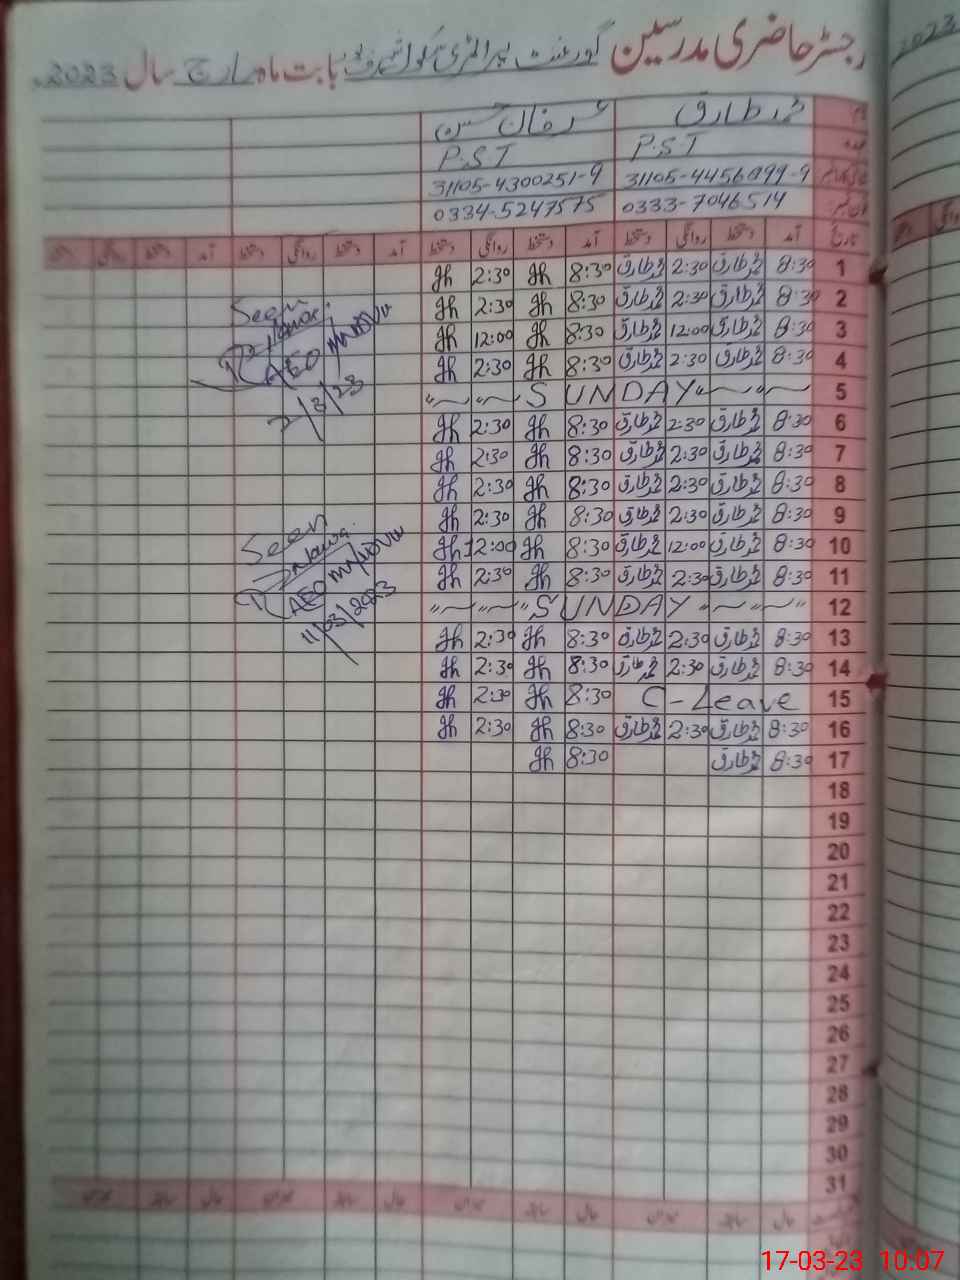 رجسٹر حاضری مدرسین گورنمنٹ پرائمری سکول بابت ماہ مارچ سال 2023
محمد طارق عرفان حسین
P.S.T P.S.T
31105-4300251-9
0333-7046514 0334-5247575
تاریخ آمد دستخط روانگی دستخط آمد دستخط روانگی دستخط آمد دستخط روانگی دستخط آمد دستخط روانگی دستخط
1 8:30 محمد طارق 2:30 محمد طارق 8:30 2:30
2 8:30 محمد طارق 2:30 محمد طارق 8:30 2:30
3 8:30 محمد طارق 12:00 محمد طارق 8:30 12:00
4 8:30 محمد طارق 2:30 محمد طارق 8:30 2:30
5 SUNDAY
6 8:30 محمد طارق 2:30 محمد طارق 8:30 2:30
7 8:30 محمد طارق 2:30 محمد طارق 8:30 2:30
8 8:30 محمد طارق 2:30 محمد طارق 8:30 2:30
9 8:30 محمد طارق 2:30 محمد طارق 8:30 2:30
10 8:30 محمد طارق 12:00 محمد طارق 8:30 12:00
11 8:30 محمد طارق 2:30 محمد طارق 8:30 2:30
12 SUNDAY
13 8:30 محمد طارق 2:30 محمد طارق 8:30 2:30
14 8:30 محمد طارق 2:30 محمد طارق 8:30 2:30
15 C-Leave 8:30 2:30
16 8:30 محمد طارق 2:30 محمد طارق 8:30 2:30
17 8:30 محمد طارق 8:30
18
19
20
21
22
23
24
25
26
27
28
29
30
31
Seen
AEO
2/3/23
Seen
AEO
11/03/2023
2023
17-03-23 10:07